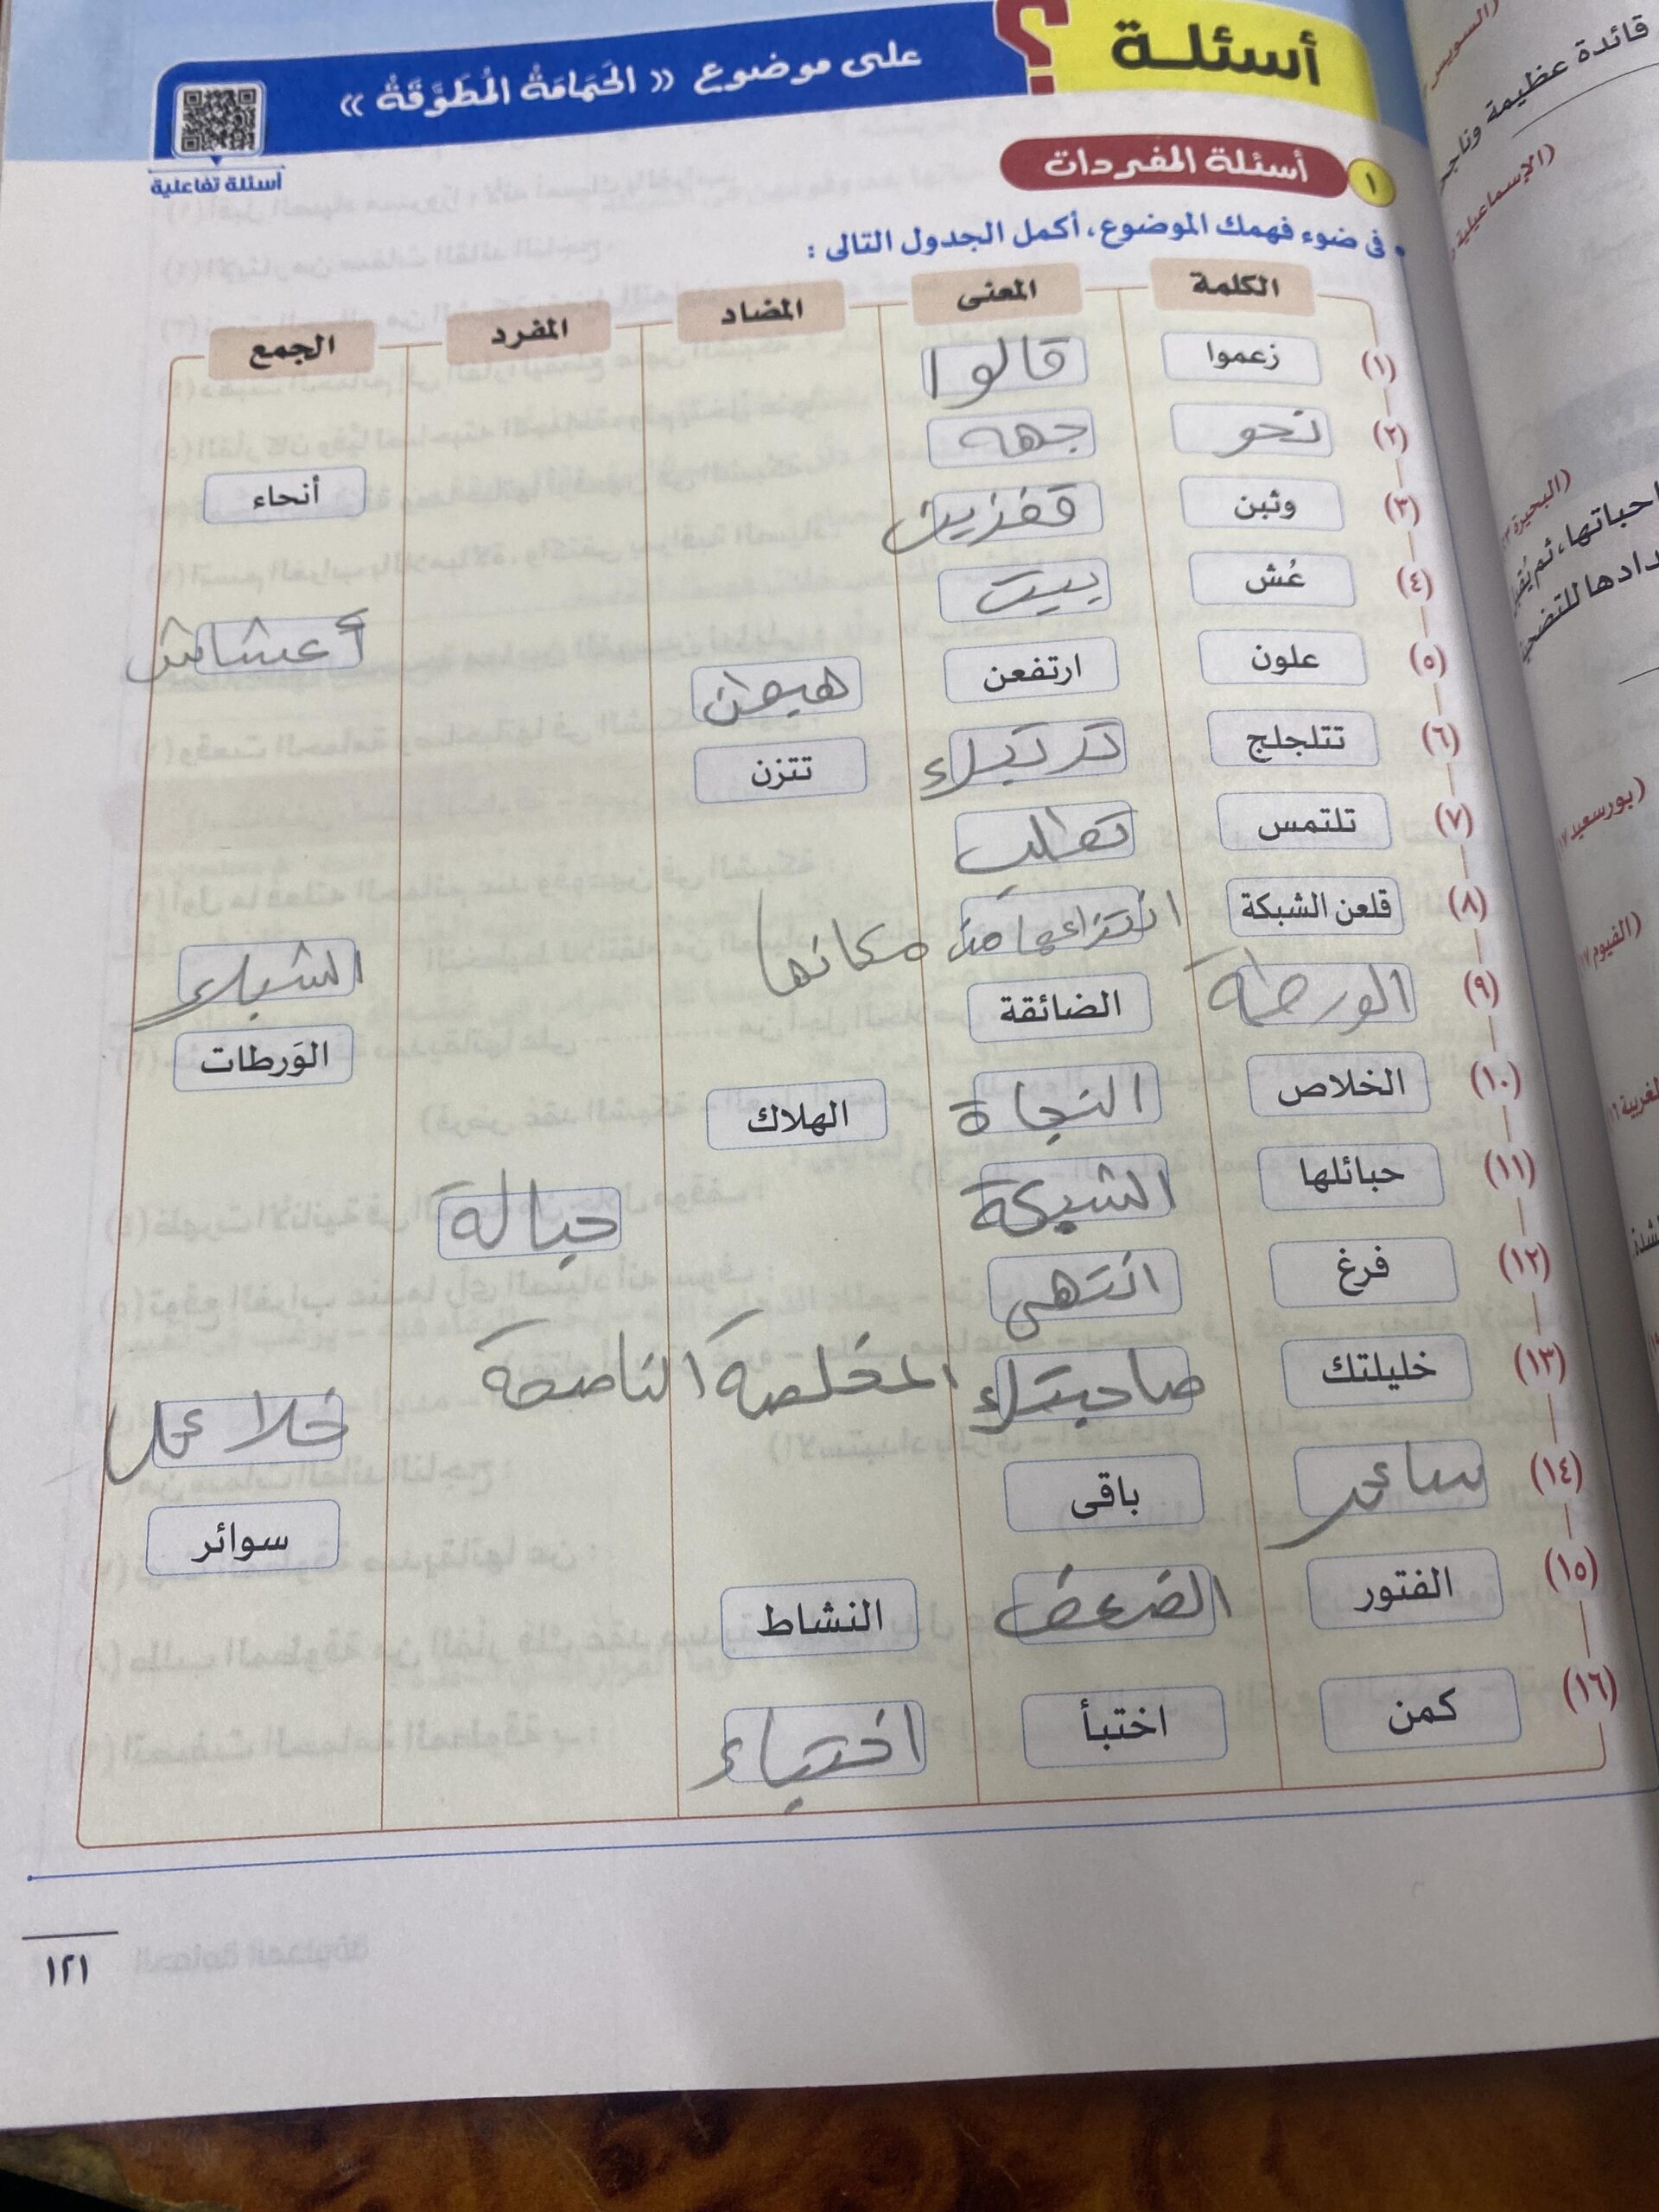 أسئلة ؟ على موضوع « الحَمَامَةُ الْمُطَوَّقَةُ »
أسئلة تفاعلية
١ أسئلة المفردات
• فى ضوء فهمك الموضوع، أكمل الجدول التالى :
الكلمة المعنى المضاد المفرد الجمع
(١) زعموا قالوا
(٢) نحو جهه أنحاء
(٣) وثبن قفزين
(٤) عُش بيت أعشاش
(٥) علون ارتفعن هبطن
(٦) تتلجلج ترتبك تتزن
(٧) تلتمس تطلب
(٨) قلعن الشبكة انتزاعها من مكانها الشبك
(٩) الورطة الضائقة الوَرطات
(١٠) الخلاص النجاة الهلاك
(١١) حبائلها الشبكة حبالة
(١٢) فرغ انتهى
(١٣) خليلتك صاحبتك المخلصة الناصحة خلائل
(١٤) سائر باقى سوائر
(١٥) الفتور الضعف النشاط
(١٦) كمن اختبأ
١٢١
(السويس
قائدة عظيمة
(الإسماعيلية
(البحيرة
(بورسعيد ١٧
(الفيوم ١٧